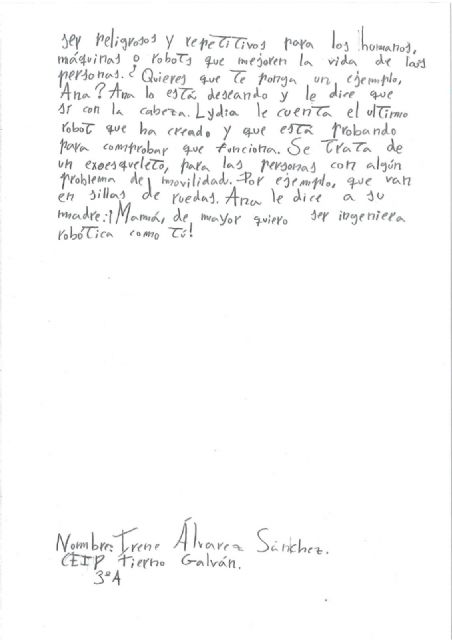 ser peligrosos y repetitivos para los humanos,
máquinas o robots que mejoren la vida de las
personas. ¿Quieres que te ponga un, ejemplo,
Ana? Ana lo está deseando y le dice que
sí con la cabeza. Lydia le cuenta el ultimo
robot que ha creado y que está probando
para comprobar que funciona. Se trata de
un exoesqueleto, para las personas con algún
problema de movilidad. Por ejemplo, que van
en sillas de ruedas. Ana le dice a su
madre: ¡Mamá, de mayor quiero ser ingeniera
robótica como tú!
Nombre: Irene Álvarez Sánchez.
CEIP Tierno Galván.
3ºA